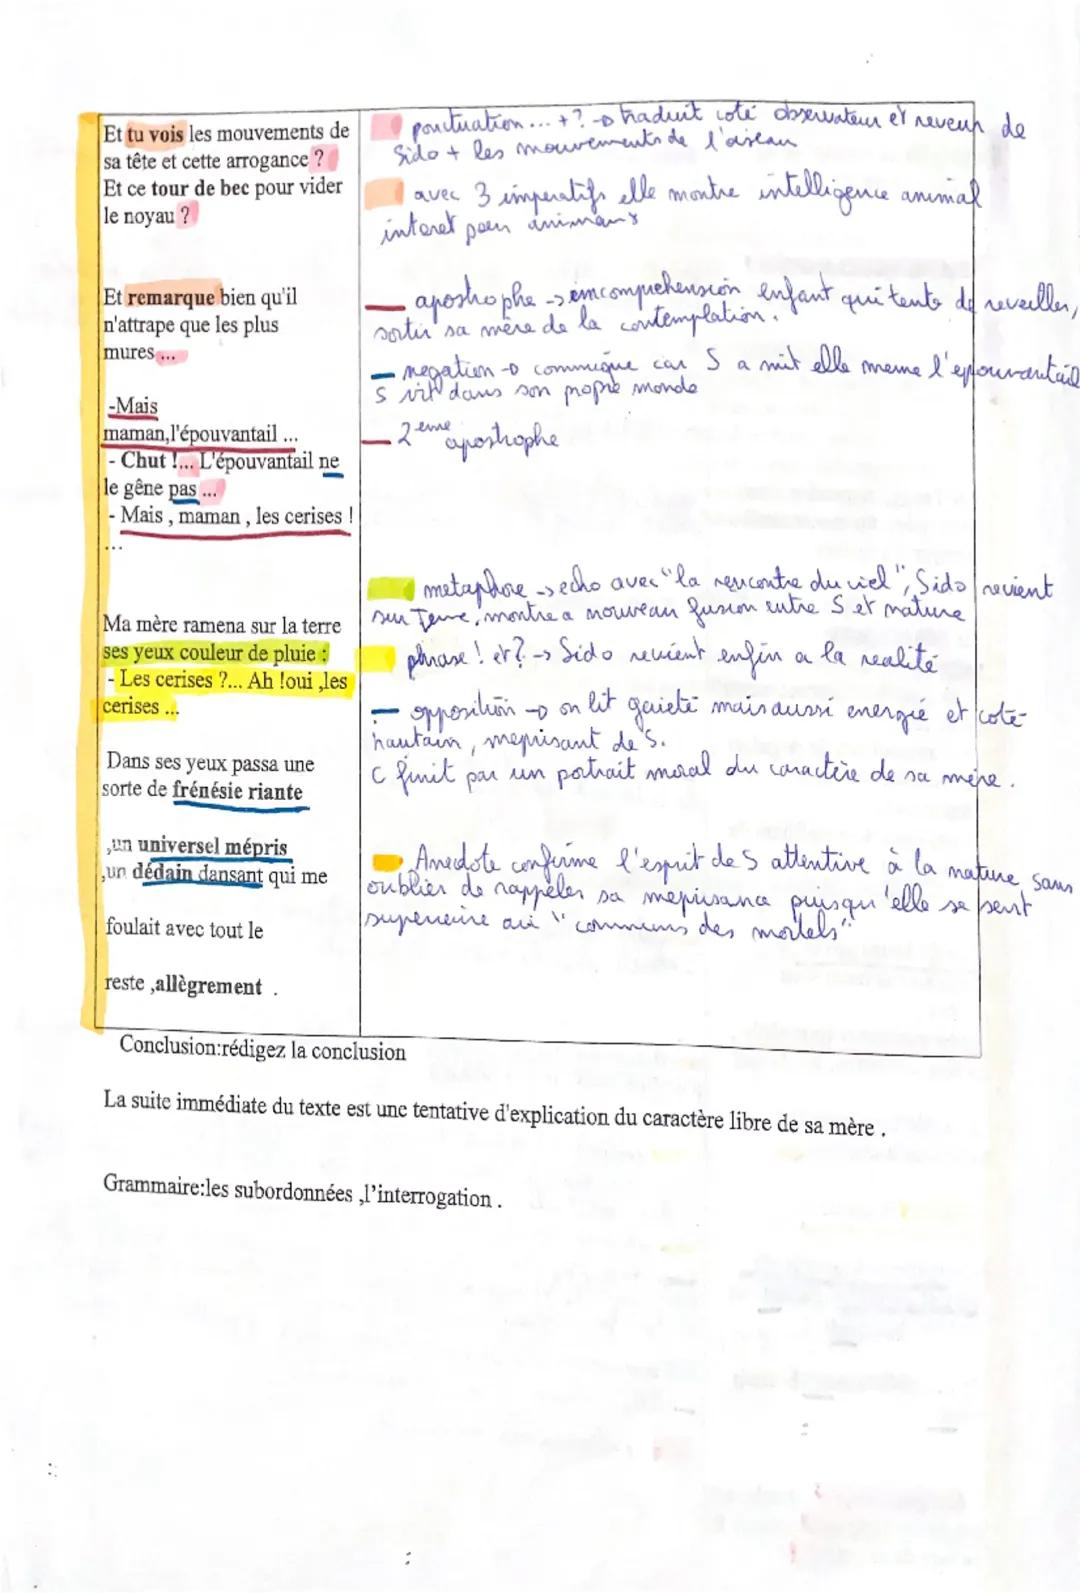 Et tu vois les mouvements de
sa tête et cette arrogance ?
Et ce tour de bec pour vider
le noyau ?
Et remarque bien qu'il
n'attrape que les plus
mures ...
-Mais
maman,l'épouvantail ...
- Chut !... L'épouvantail ne
le gêne pas ...
- Mais , maman , les cerises !
...
Ma mère ramena sur la terre
ses yeux couleur de pluie :
- Les cerises ?... Ah !oui ,les
cerises ...
Dans ses yeux passa une
sorte de frénésie riante
,un universel mépris
,un dédain dansant qui me
foulait avec tout le
reste ,allègrement .
ponctuation ... + ? → traduit coté observateur et reveur de
Sido + les mouvements de l'oiseau
avec 3 imperatifs elle montre intelligence animal
interet pour animaux
apostrophe → imcomprehension enfant qui tente de reveiller,
sortir sa mère de la contemplation.
negation → comique car S a mit elle meme l'epouvantail
S vit dans son propre monde
2eme apostrophe
metaphore → echo avec "la rencontre du ciel", Sido revient
sur Terre, montre a nouveau fusion entre S et nature
phrase ! et ? → Sido revient enfin a la realité
opposition → on lit gaieté mais aussi energie et coté
hautain, meprisant de S.
C finit par un portrait moral du caractère de sa mère.
Anecdote confirme l'esprit de S attentive à la nature sans
oublier de rappeler sa meprisance puisqu'elle se sent
superieure aux "communs des mortels".
Conclusion:rédigez la conclusion
La suite immédiate du texte est une tentative d'explication du caractère libre de sa mère .
Grammaire:les subordonnées ,l'interrogation .